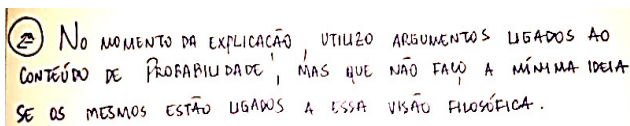 ② NO MOMENTO DA EXPLICAÇÃO, UTILIZO ARGUMENTOS LIGADOS AO
CONTEÚDO DE PROBABILIDADE, MAS QUE NÃO FAÇO A MÍNIMA IDEIA
SE OS MESMOS ESTÃO LIGADOS A ESSA VISÃO FILOSÓFICA.